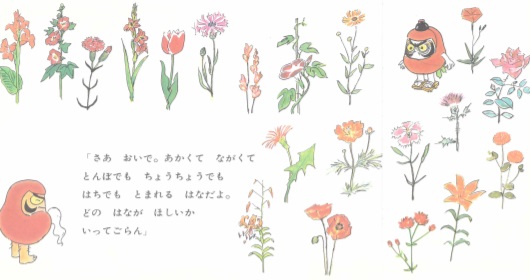 「さあ　おいで。あかくて　ながくて
とんぼでも　ちょうちょうでも
はちでも　とまれる　はなだよ。
どの　はなが　ほしいか
いってごらん」